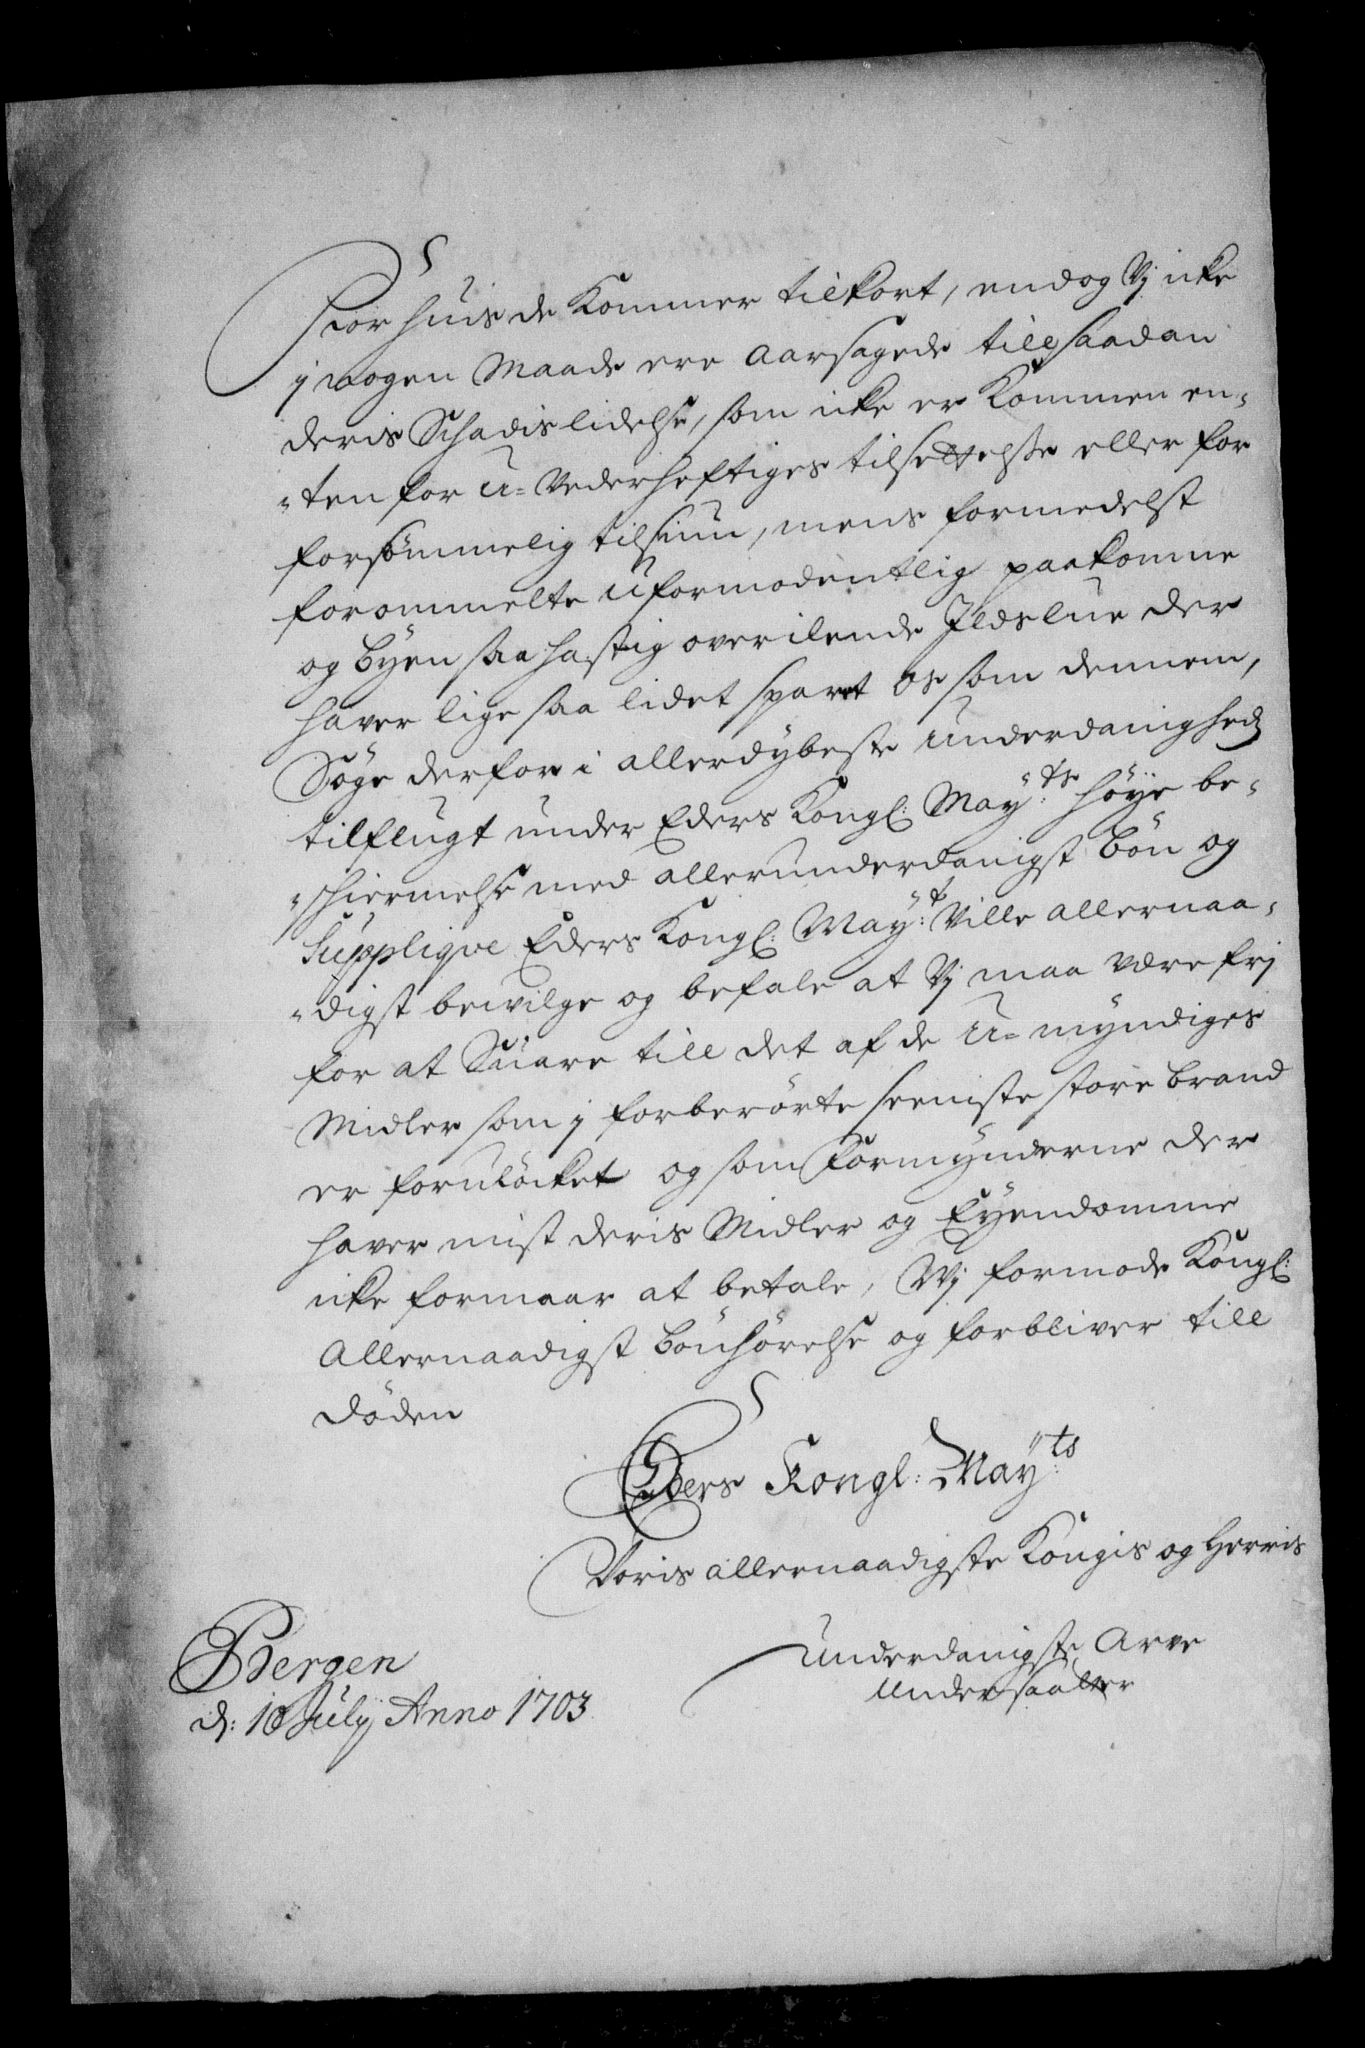 For huis de kommer tilkort, endog Vj icke
j nogen Maade ere aarsagede till saadan
deris Schadislidelse, som icke er kommen en-
-ten for U=vederheftiges tilsettelsse eller for
forsömmelig tilsiun, mens formedelst
forommelte uformodentlig paakomne
og byen saa hastig overilende Ildslue der
haver lige saa lidet sparet os som dennem,
Söge derfor i allerdybeste underdanighed
tilflugt under Eders Kongl: May:ts höye be-
-schiermelse med allerunderdanigst bön og
Supplique Eders Kongl: May:t Ville allernaa-
-digst bevilge og befale at Vj maa være frj
for at Suare till det af de U=myndiges
Midler som j forberörte seeniste store brand
er foruløcket og som Formynderne der
haver mist deris Midler og Eyendomme
icke formaar at betale, Wj formode Kongl:
Allernaadigst bönhörelse og forbliver till
döden
Eders Kongl: May:ts
Voris allernaadigste Kongis og Herris
underdanigste Arve
undersaatter
Bergen
d: 10 Julij Anno 1703